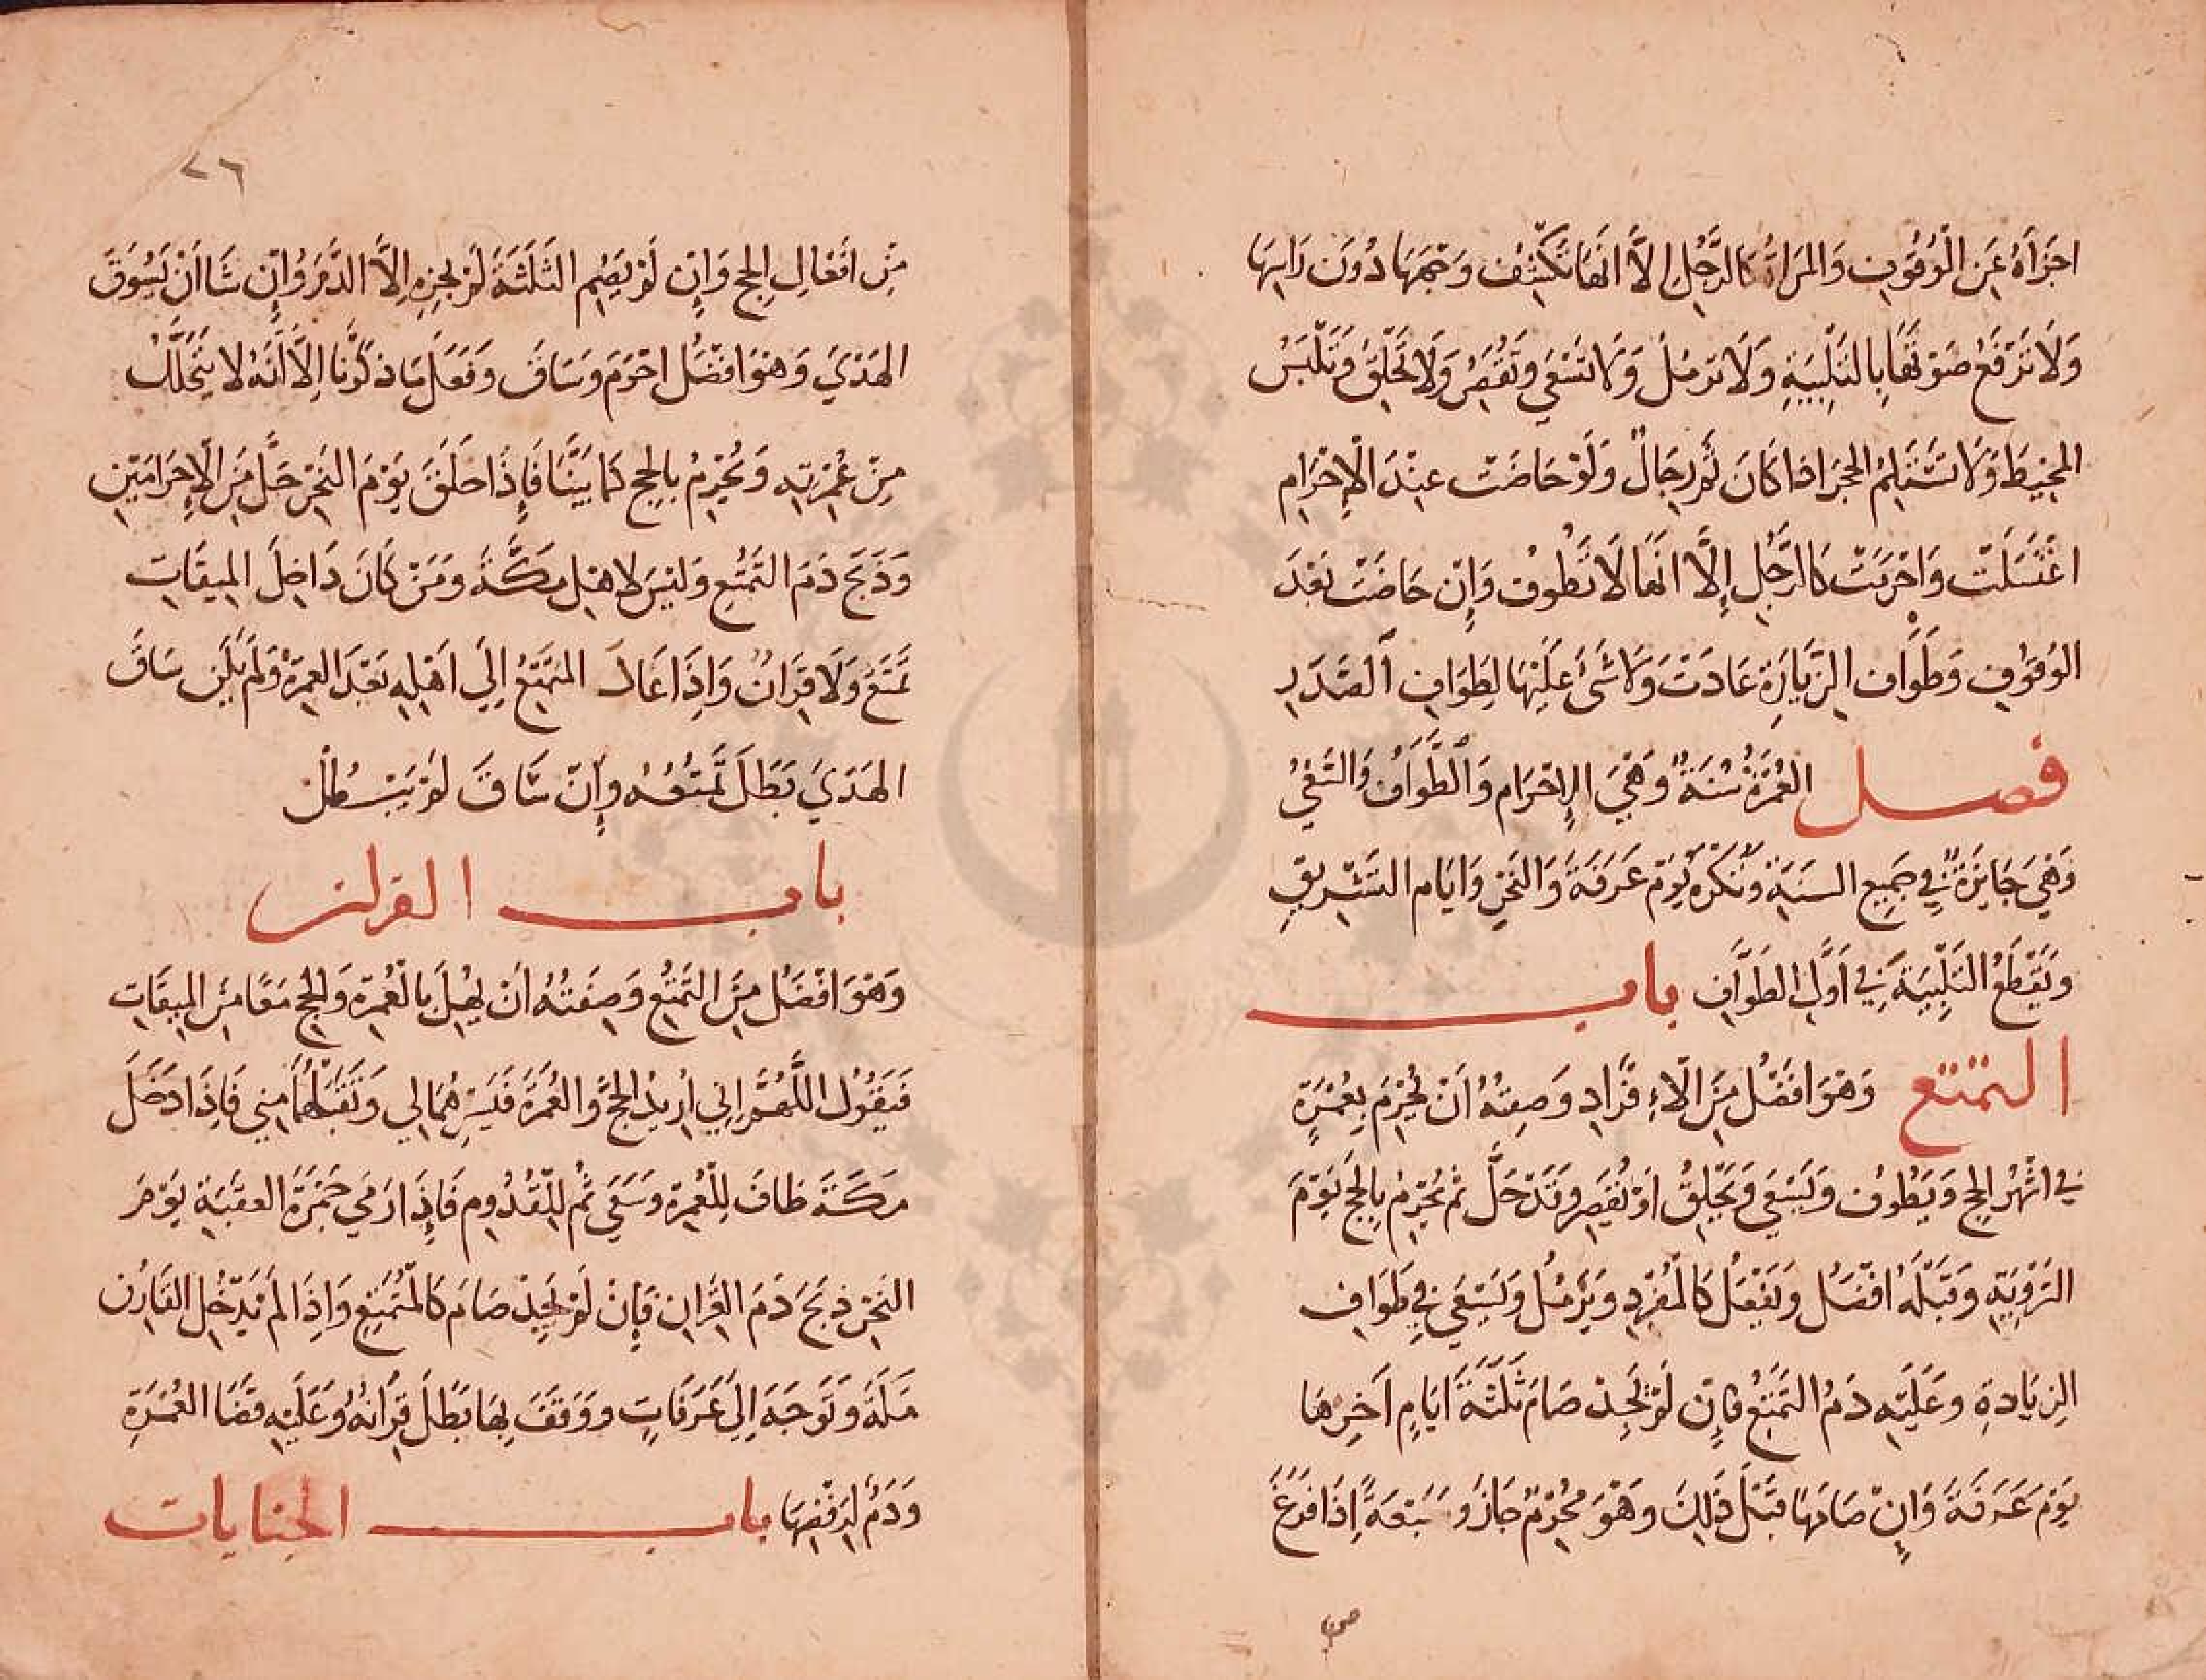 اجزَأهُ عَن الْوُقُوفِ وَالمَراَةُ كالرَّجُلِ الاَّ انَّهَا تَكْشِفُ وَجْهَهَا دُونَ رَاسِهَا
وَلاَ تَرْفَعُ صَوْتَهَا بِالتَلْبِيَةِ وَلاَ تَرمُلُ وَلاَ تَسْعَي وَتُقَصِرُ وَلاَ تَحْلِقُ وَتَلْبَسُ
المخِيطَ وَلاَ تَسْتَلِمُ الحجَرَ اذا كَانَ ثَمَّ رِجَالٌ وَلَوْ حَاضَتْ عِنْدَ الْاِحْرَامِ
اغْتَسَلَتْ وَاحْرَمَتْ كَالرَّجُلِ اِلَّا انَّهَا لَا تَطُوفُ وَاِنْ حَاضَتْ بَعْدَ
الوُقوُفِ وَطَوَافِ الزِيَارَةِ عَادَتْ وَلاَ شَىْءَ عَلَيْهَا لِطَوَافِ الصَّدَرِ
فصل العُمْرَةُ سُنَةٌ وَهْيَ الاِحْرَام وَالطَّوَافُ وَالسَّعْيُ
وَهْيَ جَايِزَةٌ فِي جَمِيعِ السَنَةِ وَتُكْرَهُ يَوْمَ عَرَفَةَ وَالنَحْرِ وَايَام التَشْرِيقِ
وَيَقْطَعُ التَلْبِيَةَ فِي اَوَّلِ الطَوَّافِ باب
التمتع وَهْوَ افْضَلُ مِنَ الْاءِفْرَادِ وَصِفتُهُ اَنْ يُحْرِمَ بِعُمْرَةٍ
فِي اشْهُرِ الحج وَيَطُوفُ وَيَسْعَى وَيَحْلِقُ اوْ يُقَصِرُ وَقَدْ حَلَّ ثم يُحْرِمُ بِالحَج يَوْمَ
التَرْوِيَةِ وَقَبْلَهُ افْضَلُ وَيَفْعَلُ كَالمُفْرِدِ وَيَرْمُلُ وَيَسْعَى فِي طَوَافِ
الزِيَادةِ وعَلَيْهِ دَمُ التَمَتُعِ فَاِنْ لَمْ يَجِدْ صَامَ ثَلثَةَ ايَامٍ اَخِرهَا
يَوْمَ عَرَفَةَ وَاِنْ صَامَهَا قبْلَ ذَلِكَ وَهْوَ مُحْرِمٌ جَازَ وسَبْعَةً اِذَا فَرَغَ
صن
٢٦
مِنْ افْعَالِ الحج وَاِن لَمْ يَصُم الثَلَثَةَ لَمْ يجزِهِ اِلاَّ الدَّمُ وَاِن شَا اَنْ يَسُوقَ
الهَدْيَ وَهْوَ افْضَلُ احْرَمَ وَسَاقَ وَفعَلَ مَا ذَكَرْنَا اِلاَّ انَّهُ لا يَتَحَلَّلُ
مِنْ عُمْرَتِهِ وَيُحْرِمُ بالحج كَمَا بَيَّنَا فَاِذَا حَلَقَ يَوْمَ النَحْرِ حَلَّ مِنَ الاِحْرَامَيْنِ
وَذَبَحَ دَمَ التَمَتُعِ وَلَيْسَ لاهْلِ مَكَّةَ وَمَنْ كَانَ دَاخِلَ المِيقَاتِ
تَمَتُعٌ وَلَا قِرَانٌ وَاِذَا عَادَ المتَمَتِعُ اِلَي اَهْلِهِ بَعْدَ العمرَةِ وَلم يَكُن سَاقَ
الهَدْيَ بَطَلَ تَمَتُعُهُ وَاِنْ سَاقَ لَمْ يَبْطُلْ
باب القران
وَهْوَ افْضَلُ مِنَ التَمَتُعِ وَصِفَتُهُ اَن يُهِلَ بِالْعُمْرَةِ وَالحج مَعًا مِنَ المِيقَاتِ
فَيَقُولُ اللَّهُمَّ اِنِي اُرِيدُ الحَجَّ وَالعُمْرَةَ فَيَسِرْهُمَا لِي وَتَقَبَّلْهُمَا مِنِي فَاِذَا دَخَلَ
مَكَةَ طَافَ لِلْعُمرَةِ وَسَعَي ثُم لِلْقُدُومِ فَاِذَا رَمَي جَمْرَةَ العقَبَةِ يَوْمَ
النَحْرِ ذبَحَ دَمَ القِرَانِ فَاِنْ لَمْ يَجِدْ صَامَ كَالمُتَمَتِعِ وَاِذَا لَمْ يَدْخُلِ القَارِنُ
مَكَةَ وَتَوَجَهَ اِلَي عَرَفَاتٍ وَوَقَفَ بِهَا بَطَلَ قِرَانُهُ وَعَلَيْهِ قَضَا العُمْرَةِ
وَدَمٌ لِرَفْضِهَا باب الجنايات